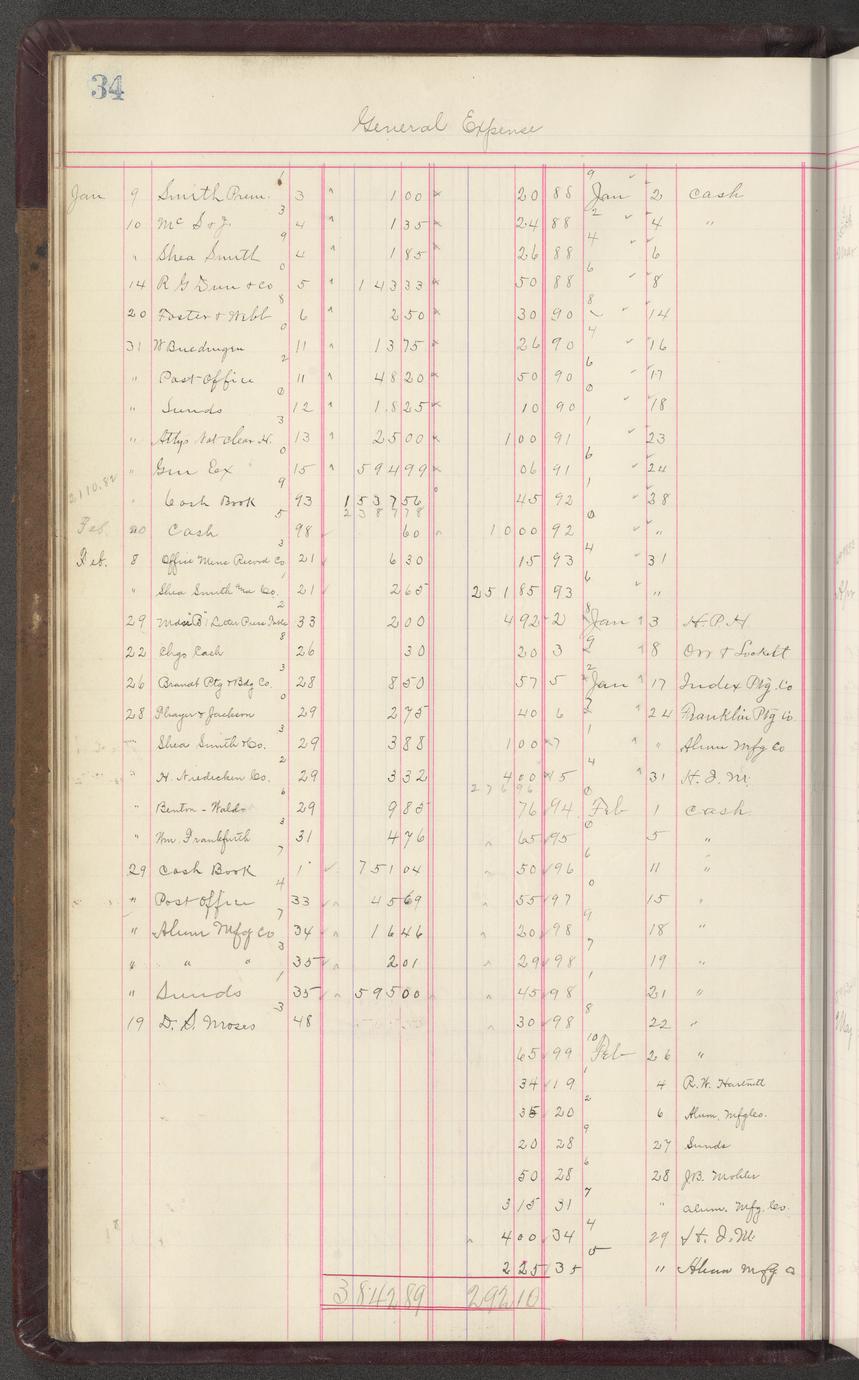 34
General Expense
Jan 9 Smith Prem. 3 1 00 20 88 Jan 2 Cash
10 Mc S & J. 4 1 35 24 88 4 "
" Shea Smith 4 1 85 26 88 6
14 R G Dun & Co 5 143 33 50 88 8
20 Foster & Webb 6 2 50 30 90 14
31 11 13 75 26 90 16
" Post Office 11 48 20 50 90 17
" Sunds 12 1.8 25 10 90 18
" Attys Nat Clear H. 13 25 00 1 00 91 23
" Gen Ex 15 594 99 06 91 24
2110.82
" Cash Book 93 1537 56 45 92 28
2387 78
Feb. 20 Cash 98 60 10 00 92 "
Feb. 8 Office Mens Record Co 21 6 30 15 93 31
" Shea Smith Co. 21 2 65 251 85 93 "
29 33 2 00 4 92 2 Jan 3 H.P.H
22 Chgs Cash 26 30 20 3 8 Orr & Lockett
26 Brandt Ptg & Bdg Co. 28 8 50 57 5 Jan 17 Index Ptg. Co
28 Thayer & Jackson 29 2 75 40 6 24 Franklin Ptg Co.
Shea Smith & Co. 29 3 88 1 00 7 " Alum Mfg Co
" H. Niedecken Co. 29 3 32 4 00 15 31 H. J. M.
276 96
" Benton-Waldo 29 9 85 76 94 Feb 1 Cash
" Wm. Frankfurth 31 4 76 65 95 5 "
29 Cash Book 1 751 04 50 96 11 "
" Post Office 33 45 69 55 97 15 "
" Alum Mfg Co 34 16 46 20 98 18 "
" " " 35 2 01 29 98 19 "
" Sunds 35 595 00 45 98 21 "
19 D. S. Moses 48 30 98 22 "
65 99 Feb 26 "
34 19 4 R. W. Hartnett
35 20 6 Alum. Mfg Co.
20 28 27 Sunds
50 28 28 J.B. Mohler
3 15 31 " Alum. Mfg. Co.
4 00 34 29 H. J. M
2 25 35 " Alum Mfg Co
3842 89 292 10